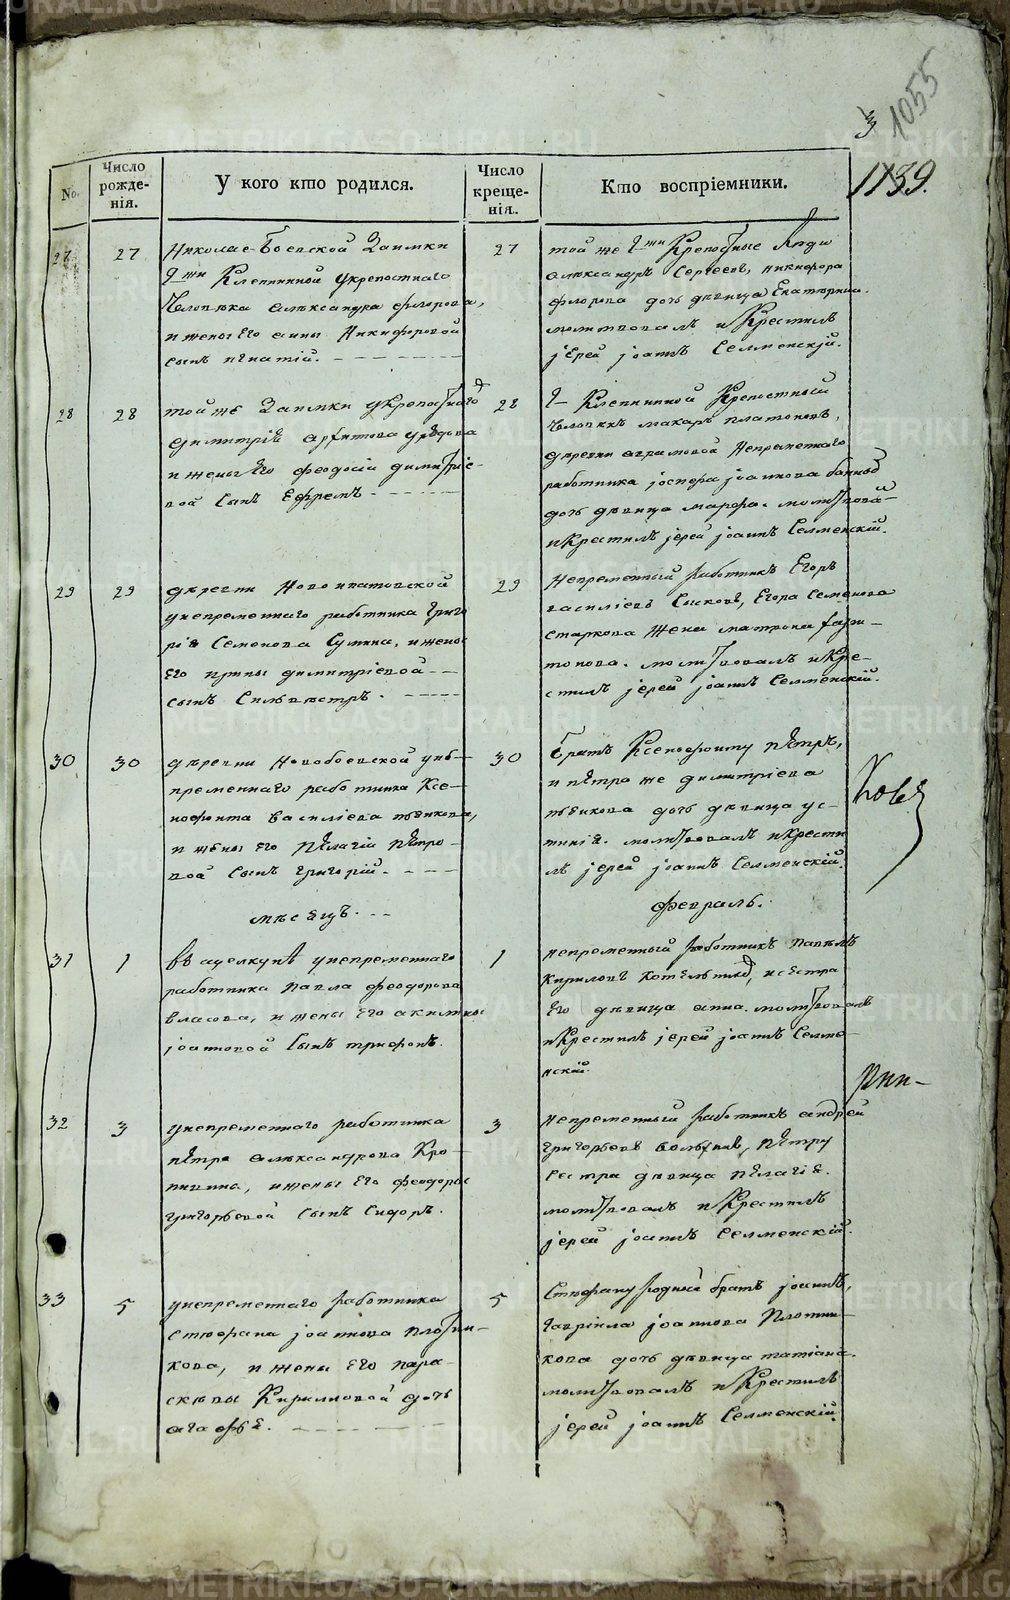 3 1055
1139.
No.
Число рожде-
нія.
У кого кто родился.
Число креще-
нія.
Кто воспріемники.
27
27
Николае-Боевской Заимки
Клепининой укрепостнаго
Человека александра флорова,
и жены Его анны Никифоровой
сынъ игнатій.
27
той же Крепостные Люди
александръ Сергеевъ, никифора
флорова дочь дѣвица Екатерина.
молитвовалъ и Крестилъ
јерей јоаннъ Селменскій.
28
28
той же Заимки укрепостнаго
димитрія
и жены Его феодосіи димитріе-
вой сынъ Ефремъ.
28
Клепининой Крепостный
человекъ макаръ платоновъ,
деревни Непременнаго
работника јоаннова
дочь дѣвица марфа. молитвова-
и Крестилъ јерей јоаннъ Селменскій.
29
29
деревни Новоипатовской
унепременнаго работника Григо
рія Семенова Сулина, и жены
Его ирины димитріевой
сынъ Сильвестръ.
29
Непременный работникъ Егоръ
василіевъ Сысковъ, Егора Семенова
старкова жена матрона
тонова. молитвовалъ и Кре-
стилъ јерей јоаннъ Селменскій.
30
30
деревни Новобоевской уне-
пременнаго работника Ксе-
нофонта василіева пѣвкова,
и жены Его пелагіи петро-
вой сынъ григорій.
30
братъ Ксенофонту петръ,
и петра же димитріева
пѣвкова дочь дѣвица ус-
тинія. молитвовалъ и крести
лъ јерей јоаннъ Селменскій.
мѣсяцъ.
февраль.
31
1
въ щелкунѣ унепременнаго
работника павла феодорова
власова, и жены Его акилины
јоанновой Сынъ трифонъ.
1
непременный работникъ павелъ
Кириловъ и сестра
Его дѣвица анна. молитвовалъ
и Крестилъ јерей јоаннъ Селме-
нскій.
32
3
унепременнаго работника
петра александрова Кро-
пивина, и жены Его феодоры
григорьевой сынъ Сидоръ.
3
непременный работникъ андрей
григорьевъ петру
Сестра дѣвица пелагія.
молитвовалъ и Крестилъ
јерей јоаннъ Селменскій.
33
5
унепременнаго работника
стефана јоаннова плотни-
кова, и жены Его пара-
скевы Кириловой дочь
агафья.
5
Стефану родный братъ јоаннъ,
гавріила јоаннова Плотни-
кова дочь дѣвица татіана.
молитвовалъ и Крестилъ
јерей јоаннъ Селменскій.